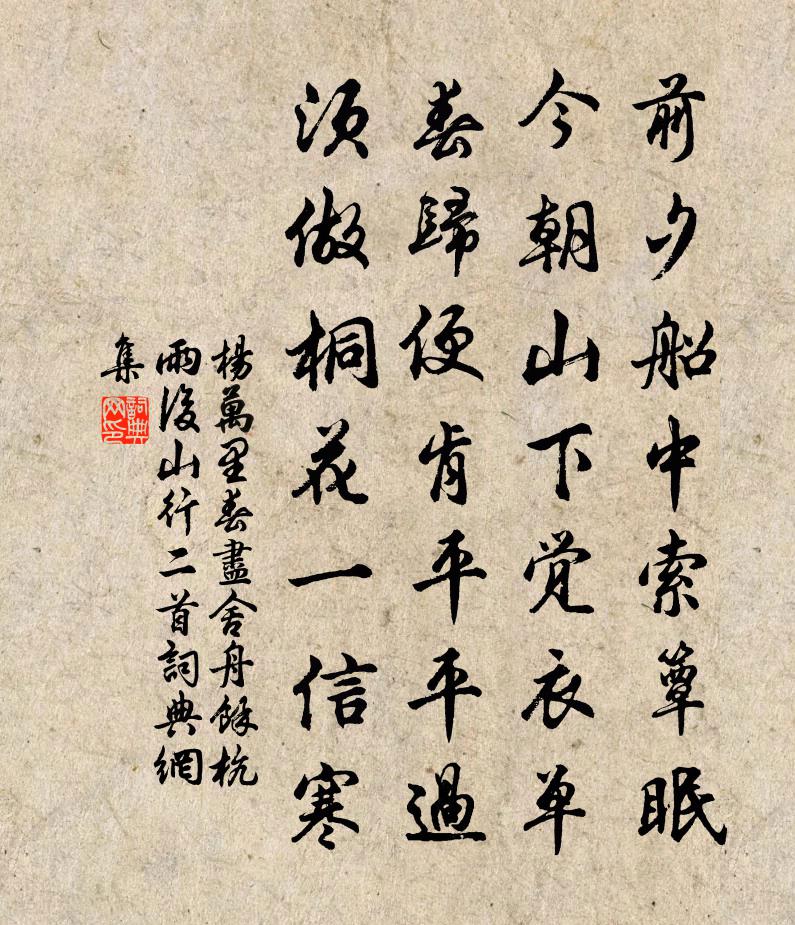 前夕船中索簟眠
今朝山下觉衣单
春歸便肯平平過
須做桐花一信寒
楊萬里春盡舍舟餘杭
雨後山行二首詞典網
集
詞典
网印